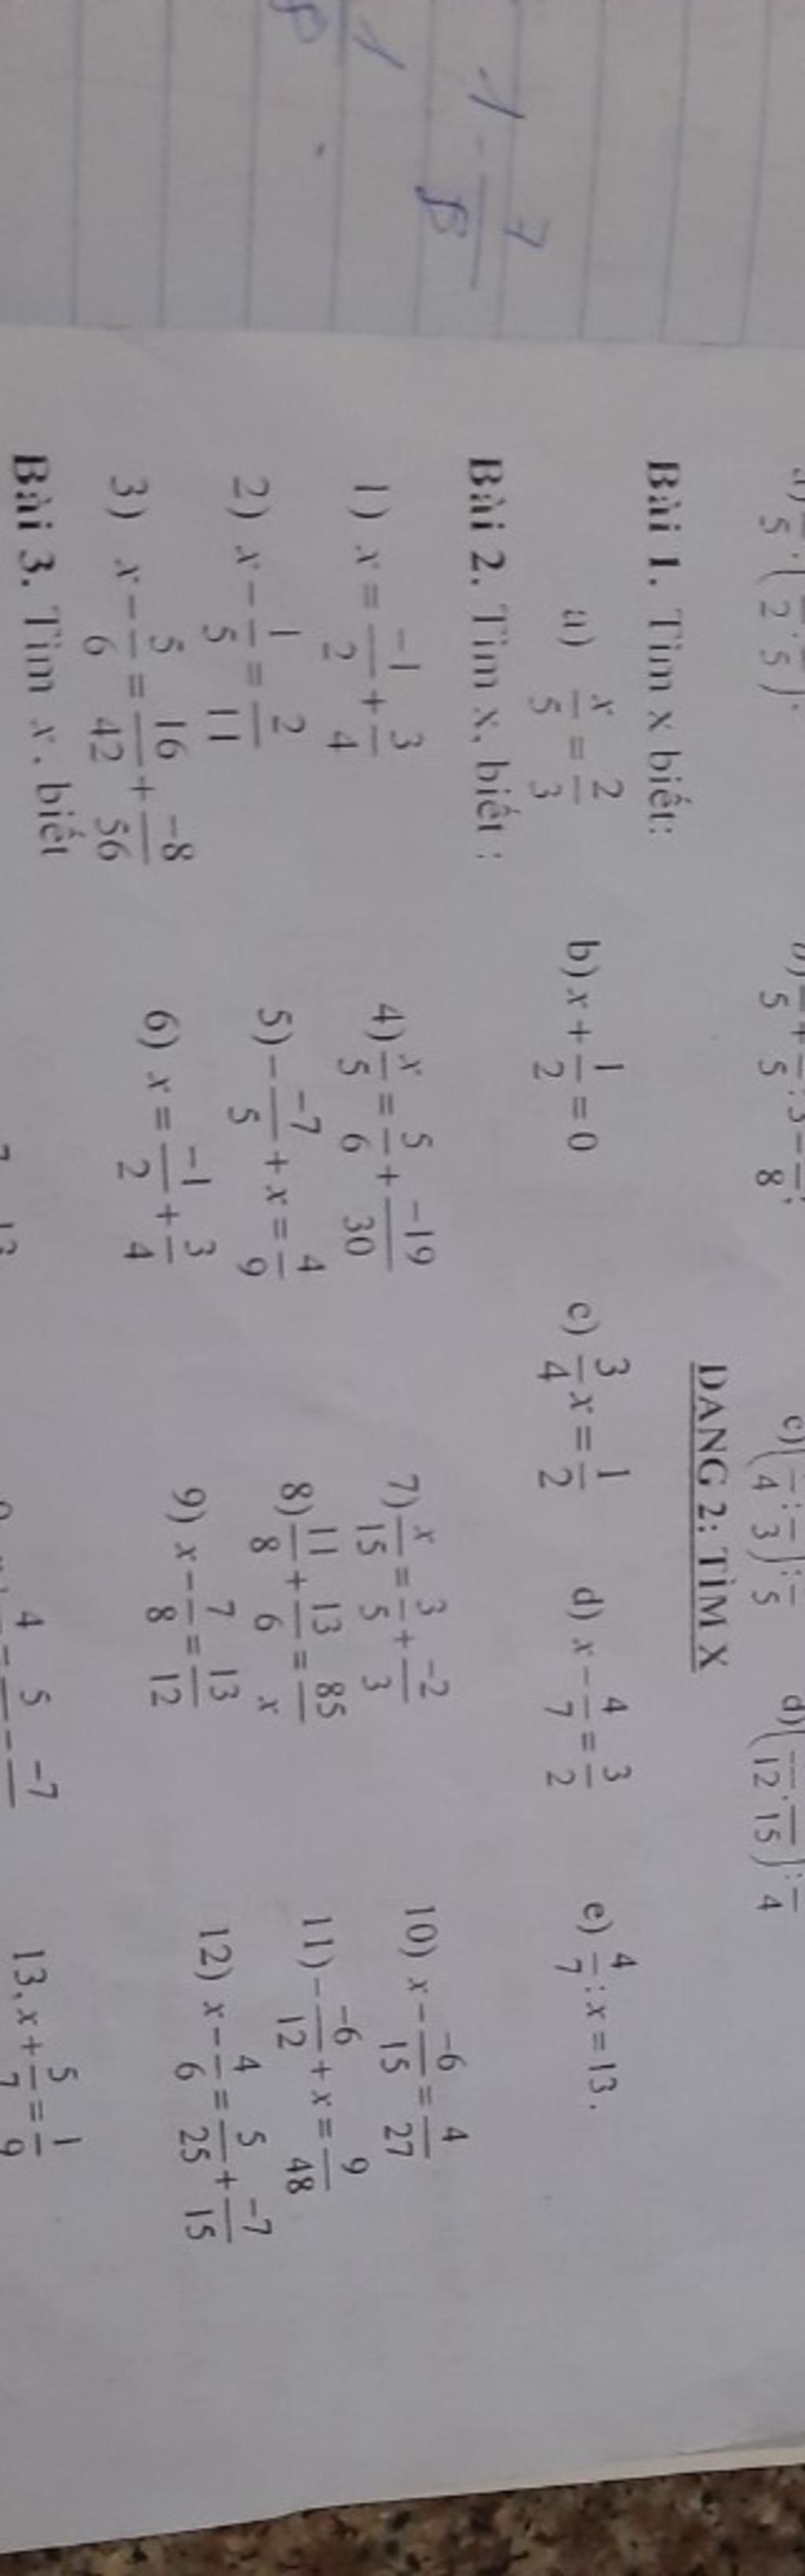 DẠNG 2: TÌM X
Bài 1. Tìm x biết:
a) x/5 = 2/3 b) x + 1/2 = 0 c) 3/4 x = 1/2 d) x − 4/7 = 3/2 e) 4/7 : x = 13.
Bài 2. Tìm x, biết :
1) x = −1/2 + 3/4 4) x/5 = 5/6 + −19/30 7) x/15 = 3/5 + −2/3 10) x − −6/15 = 4/27
2) x − 1/5 = 2/11 5) − −7/5 + x = 4/9 8) 11/8 + 13/6 = 85/x 11) − −6/12 + x = 9/48
3) x − 5/6 = 16/42 + −8/56 6) x = −1/2 + 3/4 9) x − 7/8 = 13/12 12) x − 4/6 = 5/25 + −7/15
Bài 3. Tìm x, biết
13, x + 5/7 = 1/9